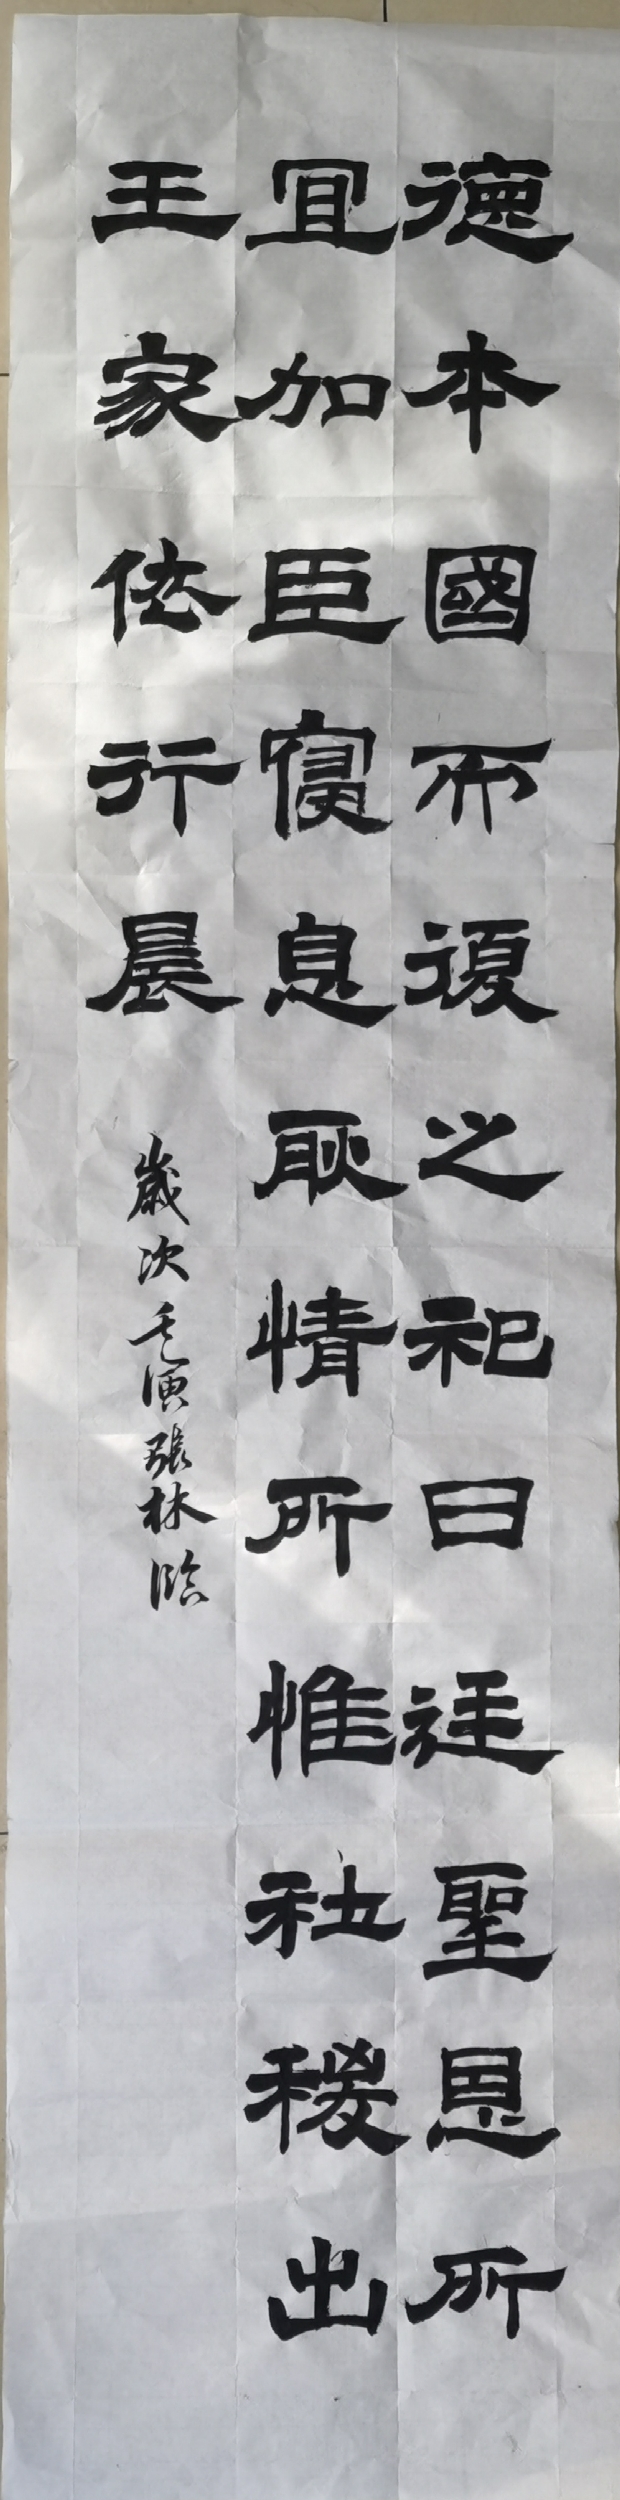 德本國而復之祀日廷聖恩所
宜加臣寢息耿情所惟社稷出
王家依行晨
歲次壬寅張林臨